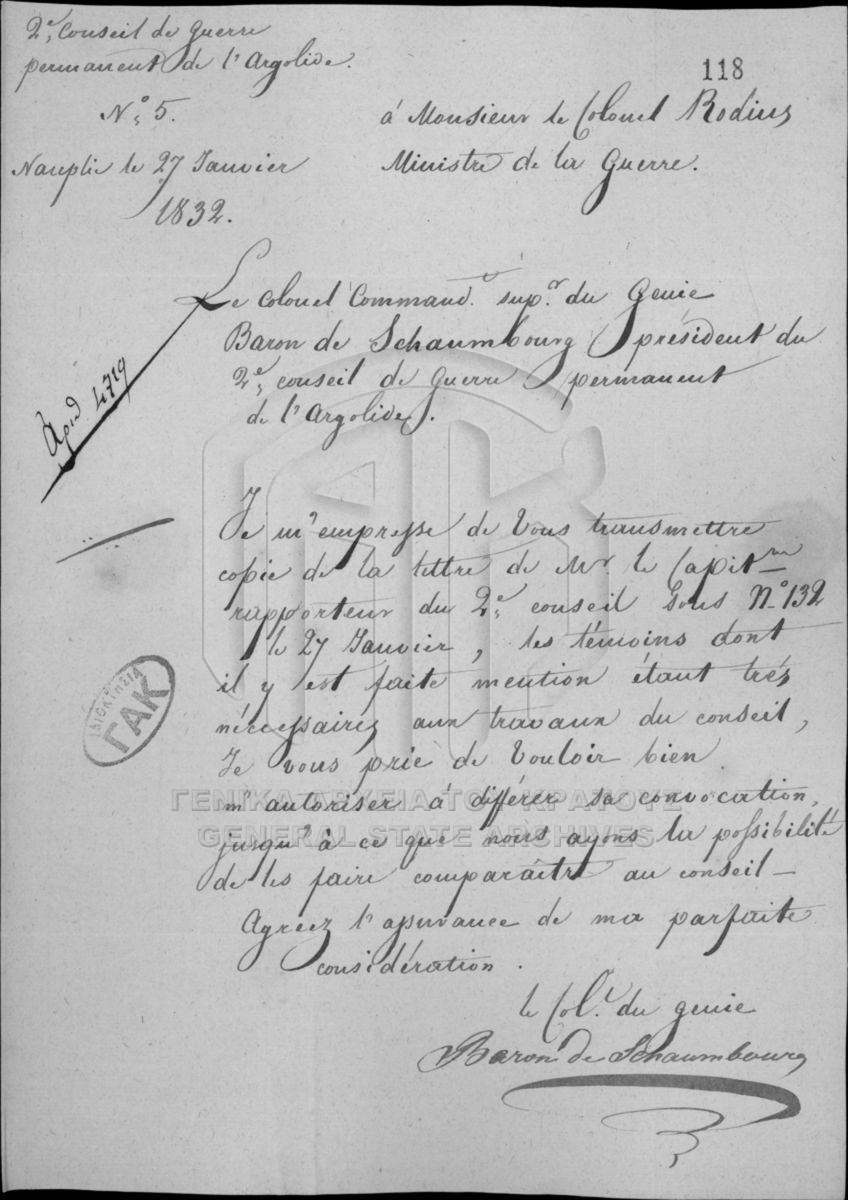 2e Conseil de guerre
permanent de l'Argolide.
118
No 5.
á Monsieur le Colonel Rodius
Ministre de la Guerre.
Nauplie le 27 Janvier
1832.
Le Colonel Command.t sup.or du Genie
Baron de Schaumbourg président du
2e conseil de guerre permanent
de l'Argolide.
Αριθ. 4719
Je m'empresse de Vous transmettre
copie de la lettre de Mr. le Capitne
rapporteur du 2e conseil sous No 132
le 27 Janvier, les témoins dont
il y est faite mention étant trés
nécessaires aux travaux du conseil,
Je vous prie de vouloir bien
m'autoriser à différer sa convocation,
jusqu'à ce que nous ayons la possibilité
de les faire comparaître au conseil –
Agréez l'assurance de ma parfaite
considération.
le Col.l du genie
Baron de Schaumbourg
ΙΔΙΟΚΤΗΣΙΑ
ΓΑΚ
ΓΕΝΙΚΑ ΑΡΧΕΙΑ ΤΟΥ ΚΡΑΤΟΥΣ
GENERAL STATE ARCHIVES